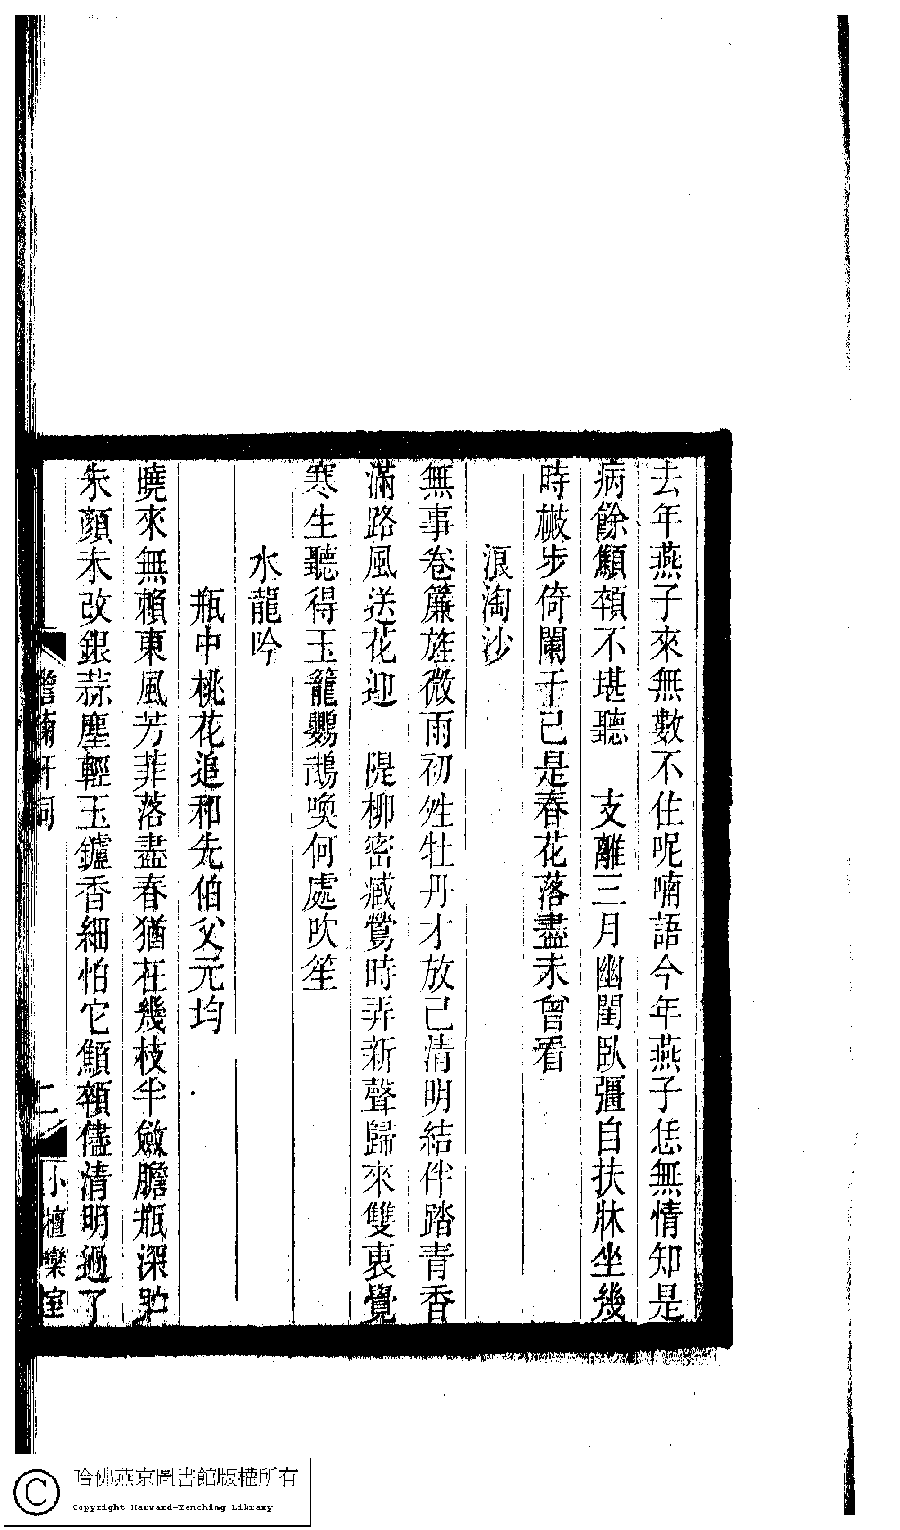 去年燕子來無數不住呢喃語今年燕子恁無情知是
病餘顦顇不堪聽　支離三月幽閨臥彊自扶牀坐幾
時步倚闌干已是春花落盡未曾看
浪淘沙
無事卷簾旌微雨初夝牡丹才放已清明結伴踏青香
滿路風送花迎　隄柳密藏鶯時弄新聲歸來雙褎覺
寒生聽得玉籠鸚鵡喚何處吹笙
水龍吟
瓶中桃花追和先伯父元均
曉來無賴東風芳菲落盡春猶在幾枝半斂膽瓶深貯
朱顏未改銀蒜塵輕玉鑪香細怕它顦顇儘清明過了
軒詞
二
小檀欒室
哈佛燕京圖書館版權所有
Copyright Harvard-Yenching Library